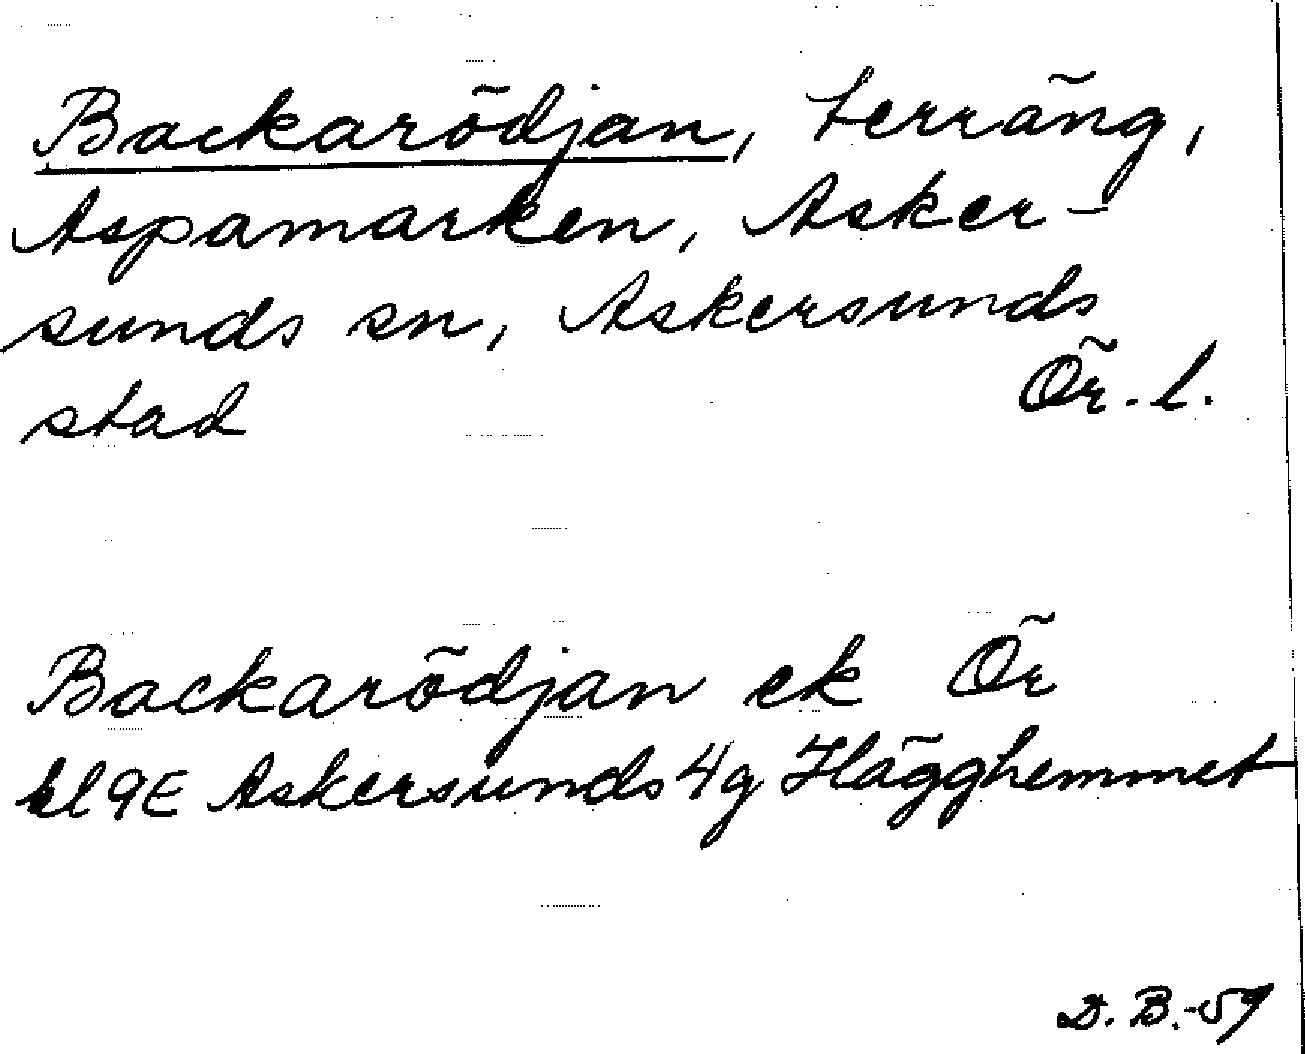 Backarödjan, terräng,
Aspamarken, Asker-
sunds sn, Askersunds
stad Ör. l.
Backarödjan ek Ör
bl 9E Askersunds 4g Hägghemmet
D. B. -59